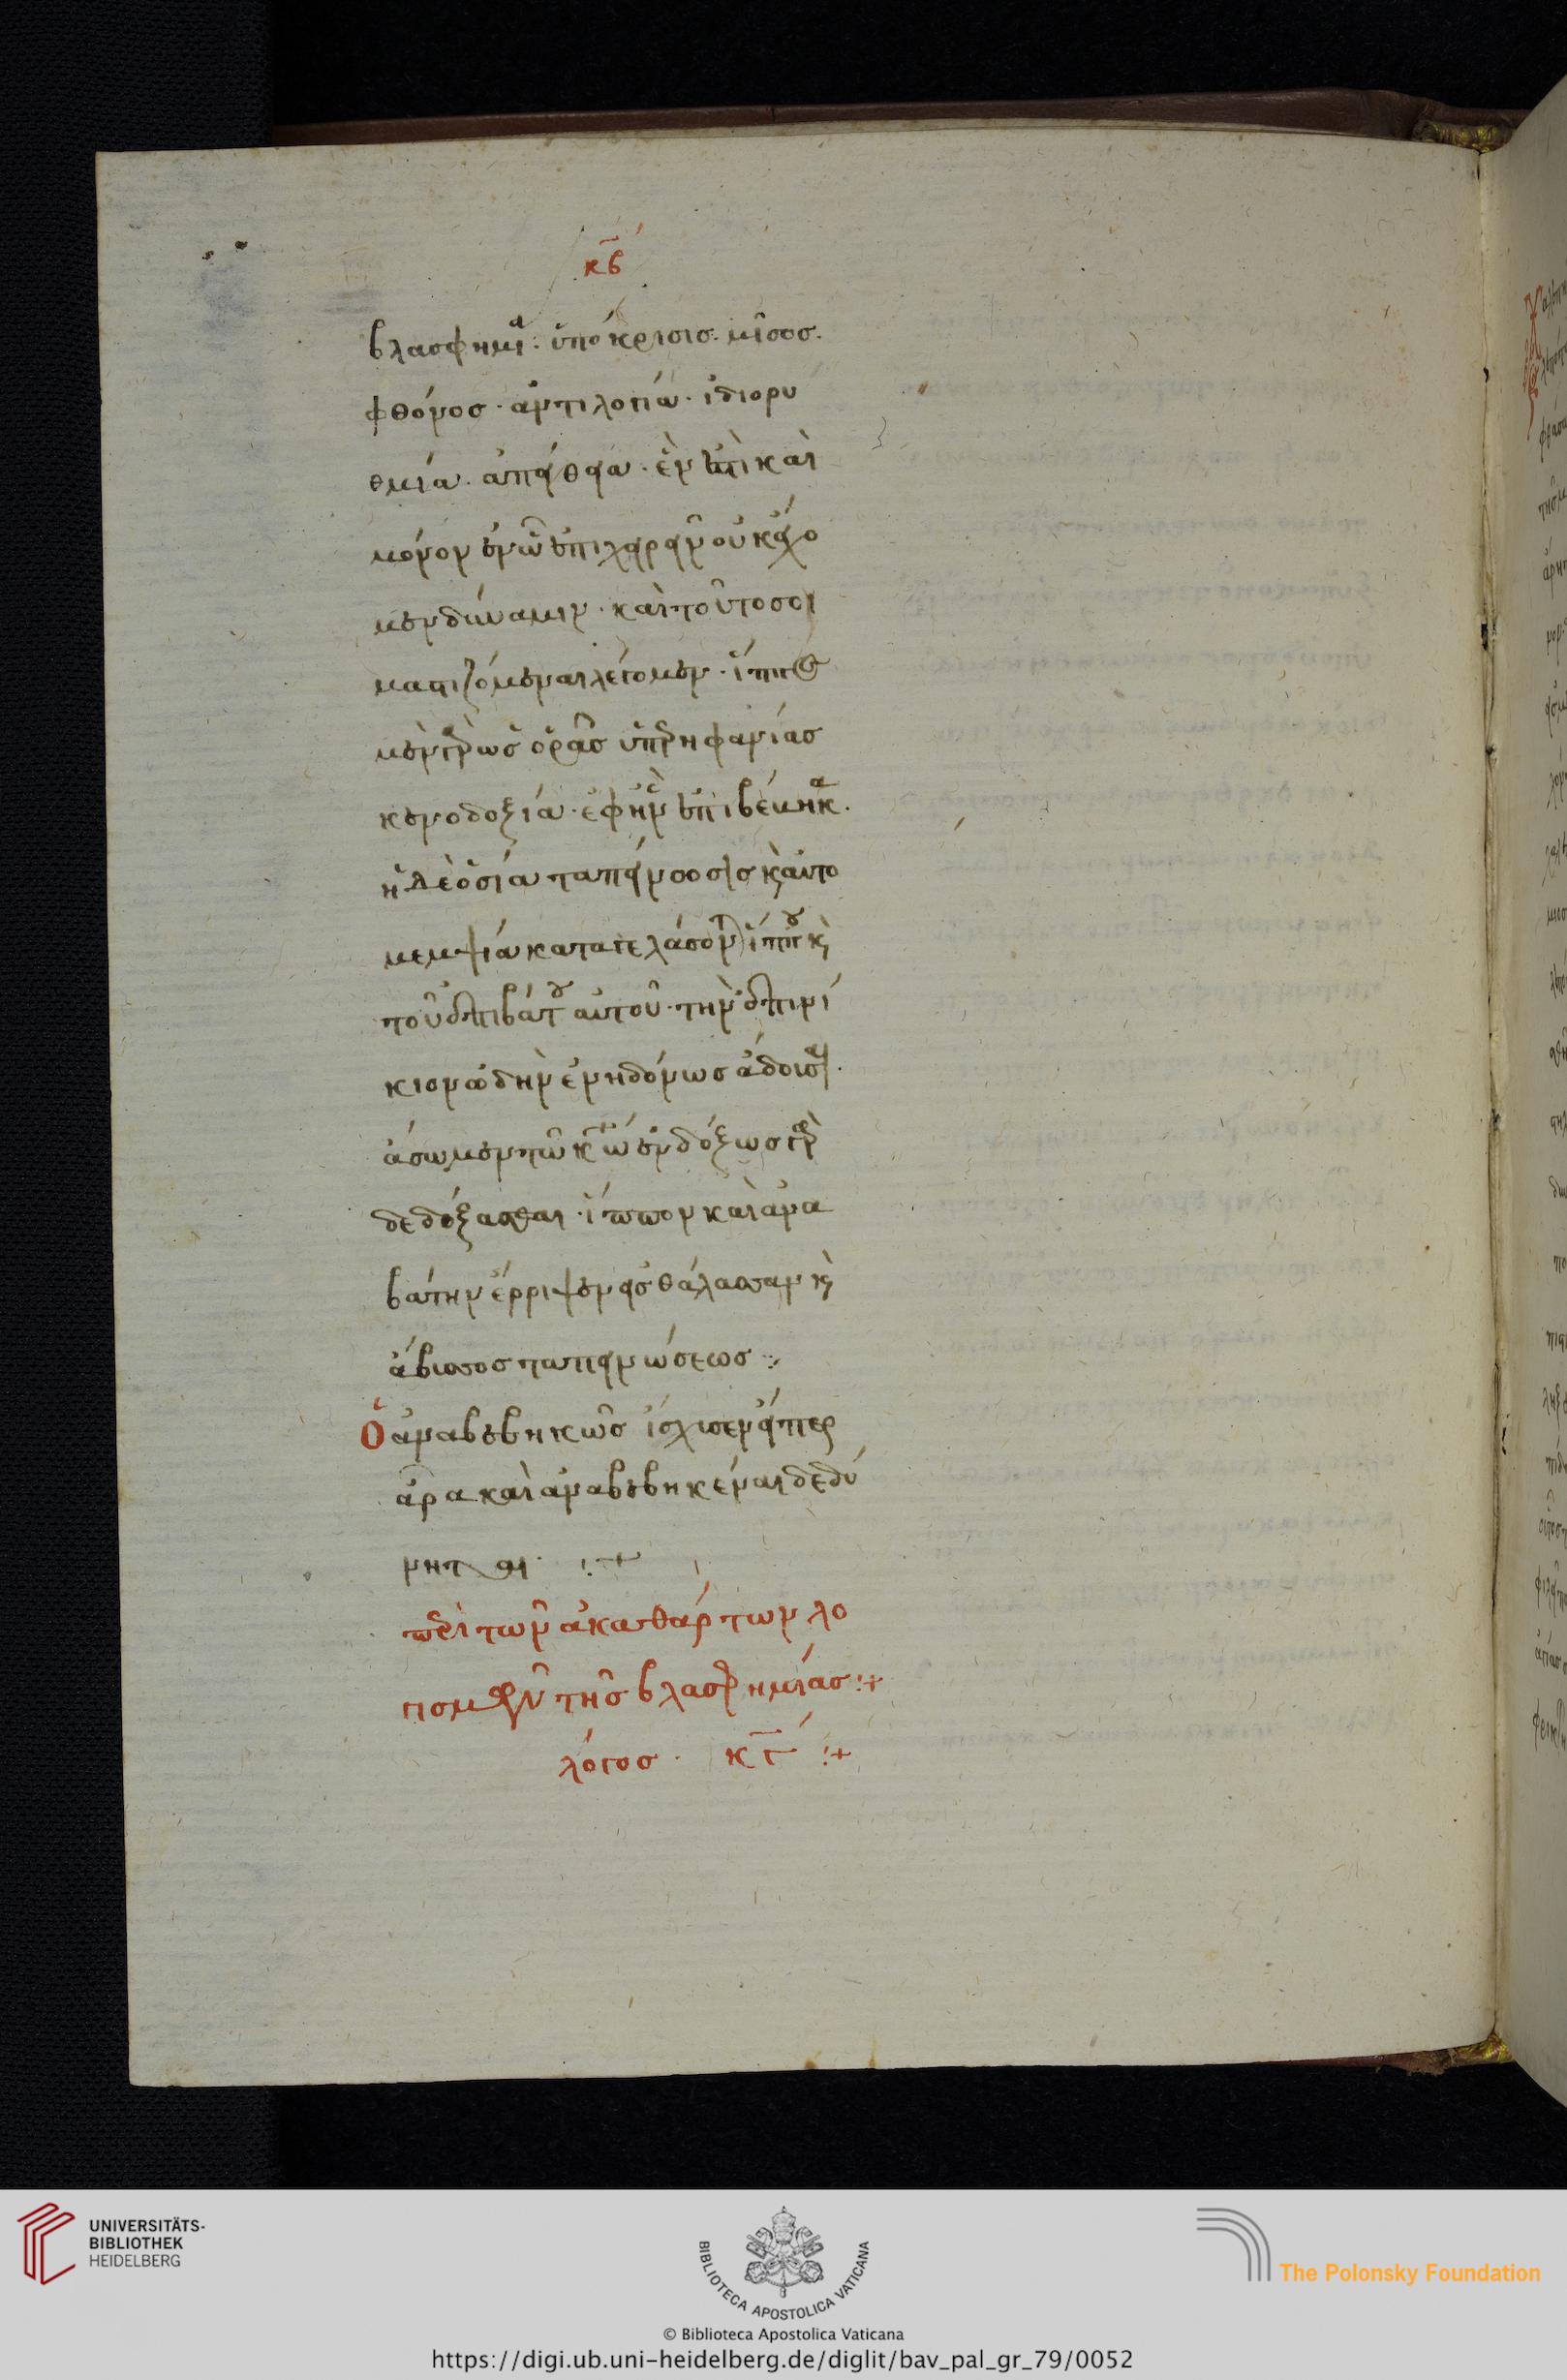 κβ
βλασφημία· ὑπόκρισις· μῖσος·
φθόνος· ἀντιλογία· ἰδιορυ
θμία· ἀπείθεια· ἓν ἐπὶ καὶ
μόνον ἐν ᾧ ἐπιχαρεῖν οὐκ ἔχο
μεν δύναμιν· καὶ τοῦτο σοι
μαστιζόμεναι λέγομεν· ἵππος
μὲν γὰρ ὡς ὁρᾶς ὑπερηφανίας
κενοδοξία· ἐφ' ἣν ἐπιβέβηκα·
ἡ δὲ ὁσία ταπείνωσις καὶ αὐτο
μεμψία καταγελάσονται ἵππου καὶ
τοῦ ἐπιβάτου αὐτοῦ· τὴν ἐπινί
κιον ὠδὴν ἐνηδόνως ἄδουσαι·
ἄσωμεν τῷ κῶ ἐνδόξως γὰρ
δεδόξασται· ἵππον καὶ ἀνα
βάτην ἔρριψεν εἰς θάλασσαν καὶ
ἄβυσσος ταπεινώσεως :·
Ὁ ἀναβεβηκὼς ἴσχυσεν εἴπερ
ἄρα καὶ ἀναβεβηκέναι δεδύ
νηται· :+
περὶ τῶν ἀκαθάρτων λο
γισμῶν τῆς βλασφημίας :+
λόγος· κγ :+
UNIVERSITÄTS-
BIBLIOTHEK
HEIDELBERG
BIBLIOTECA APOSTOLICA VATICANA
The Polonsky Foundation
© Biblioteca Apostolica Vaticana
https://digi.ub.uni-heidelberg.de/diglit/bav_pal_gr_79/0052